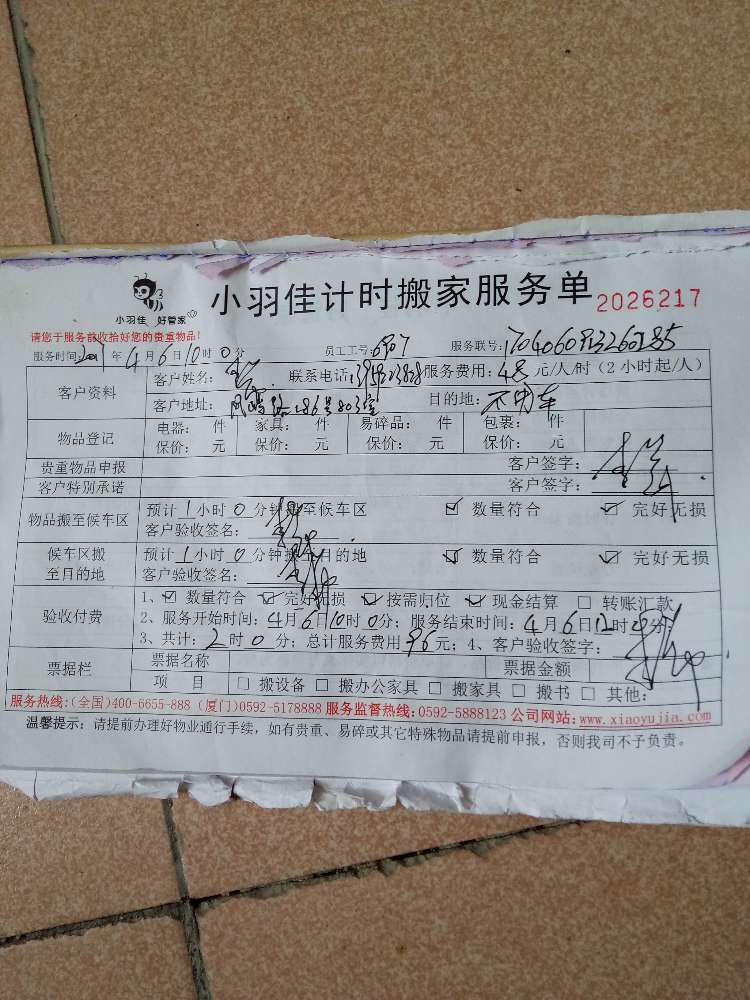 小羽佳 好管家
小羽佳计时搬家服务单 2026217
请您于服务前收拾好您的贵重物品!
服务时间: 年4月6日10时0分 员工工号: 服务联号:
客户资料 客户姓名: 联系电话: 服务费用:48元/人/时(2小时起/人)
客户地址: 286号803室 目的地:不用车
物品登记 电器: 件 家具: 件 易碎品: 件 包裹: 件
保价: 元 保价: 元 保价: 元 保价: 元
贵重物品申报 客户签字:
客户特别承诺 客户签字:
物品搬至候车区 预计1小时0分钟搬至候车区 ☑ 数量符合 ☑ 完好无损
客户验收签名:
候车区搬至目的地 预计1小时0分钟搬至目的地 ☑ 数量符合 ☑ 完好无损
客户验收签名:
验收付费 1、☑ 数量符合 ☑ 完好无损 ☑ 按需归位 ☑ 现金结算 □ 转账汇款
2、服务开始时间:4月6日10时0分;服务结束时间:4月6日12时0分;
3、共计:2时0分;总计服务费用96元;4、客户验收签字:
票据栏 票据名称 票据金额
项 目 □ 搬设备 □ 搬办公家具 □ 搬家具 □ 搬书 □ 其他:
服务热线:(全国)400-6655-888 (厦门)0592-5178888 服务监督热线:0592-5888123 公司网站:www.xiaoyujia.com
温馨提示:请提前办理好物业通行手续,如有贵重、易碎或其它特殊物品请提前申报,否则我司不予负责。